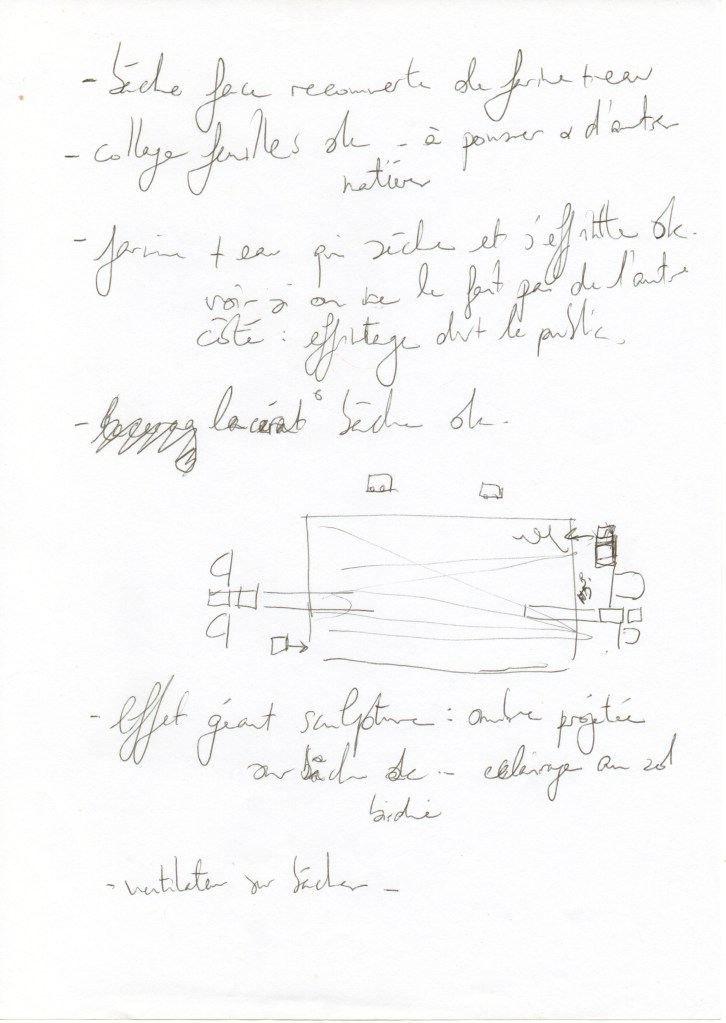 - bâche face recouverte de farine + eau
- collage feuilles ok - à pousser d'autres
matières
- farine + eau qui sèche et s'effritte ok.
voir si on ne le fait pas de l'autre
côté : effritage dvt le public.
- bâche ok.
- Effet géant sculpture : ombre projetée
sur bâche ok - eclairage au sol
- ventilateur sur bâches -